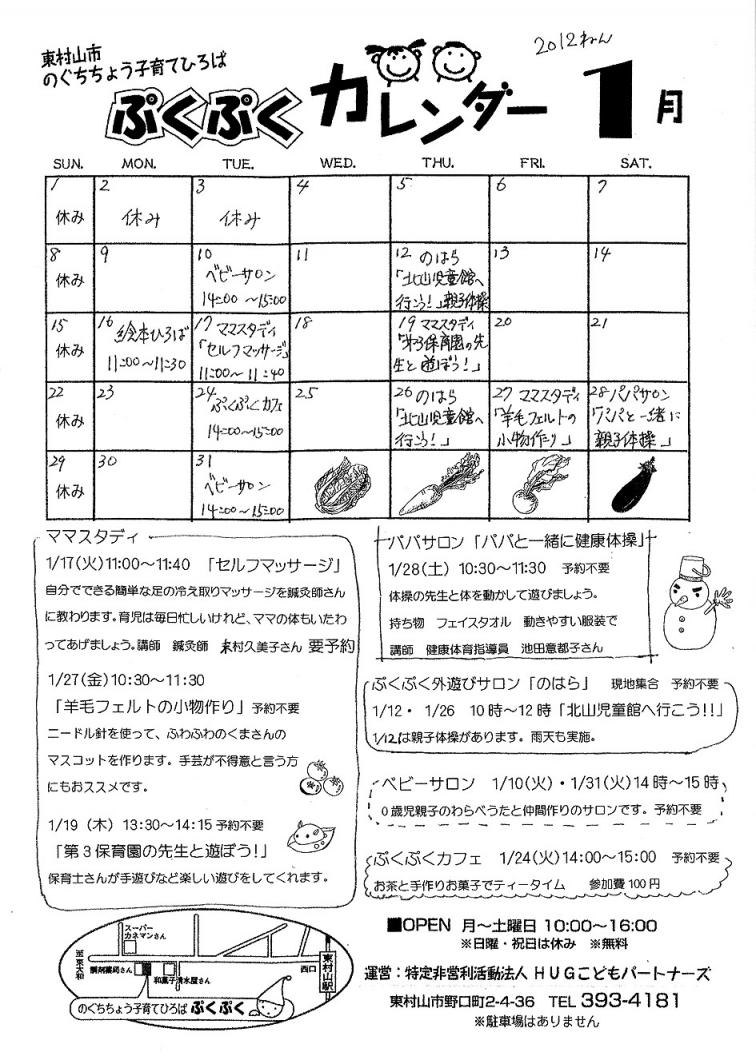 東村山市
のぐちちょう子育てひろば
2012ねん
ぷくぷくカレンダー 1月
SUN. MON. TUE. WED. THU. FRI. SAT.
1 2 3 4 5 6 7
休み 休み 休み
8 9 10 11 12 のはら 13 14
休み ベビーサロン 「北山児童館へ
14:00～15:00 行こう!」親子体操
15 16 絵本ひろば 17 ママスタディ 18 19 ママスタディ 20 21
休み 11:00～11:30 「セルフマッサージ」 「第3保育園の先
11:00～11:40 生と遊ぼう!」
22 23 24 ぷくぷくカフェ 25 26 のはら 27 ママスタディ 28 パパサロン
休み 14:00～15:00 「北山児童館へ 「羊毛フェルトの 「パパと一緒に
行こう!」 小物作り」 親子体操」
29 30 31
休み ベビーサロン
14:00～15:00
ママスタディ
1/17(火)11:00～11:40 「セルフマッサージ」
自分でできる簡単な足の冷え取りマッサージを鍼灸師さん
に教わります。育児は毎日忙しいけれど、ママの体もいたわ
ってあげましょう。講師 鍼灸師 東村久美子さん 要予約
1/27(金)10:30～11:30
「羊毛フェルトの小物作り」予約不要
ニードル針を使って、ふわふわのくまさんの
マスコットを作ります。手芸が不得意と言う方
にもおススメです。
1/19(木) 13:30～14:15 予約不要
「第3保育園の先生と遊ぼう!」
保育士さんが手遊びなど楽しい遊びをしてくれます。
パパサロン「パパと一緒に健康体操」
1/28(土) 10:30～11:30 予約不要
体操の先生と体を動かして遊びましょう。
持ち物 フェイスタオル 動きやすい服装で
講師 健康体育指導員 池田意都子さん
ぷくぷく外遊びサロン「のはら」 現地集合 予約不要
1/12・1/26 10時～12時「北山児童館へ行こう!!」
1/12は親子体操があります。雨天も実施。
ベビーサロン 1/10(火)・1/31(火)14時～15時
0歳児親子のわらべうたと仲間作りのサロンです。予約不要
ぷくぷくカフェ 1/24(火)14:00～15:00 予約不要
お茶と手作りお菓子でティータイム 参加費100円
スーパー
カネマンさん
至東大和
調剤薬局さん
和菓子清水屋さん
西口
東村山駅
のぐちちょう子育てひろば ぷくぷく
■OPEN 月～土曜日 10:00～16:00
※日曜・祝日は休み ※無料
運営:特定非営利活動法人 HUGこどもパートナーズ
東村山市野口町2-4-36 TEL 393-4181
※駐車場はありません